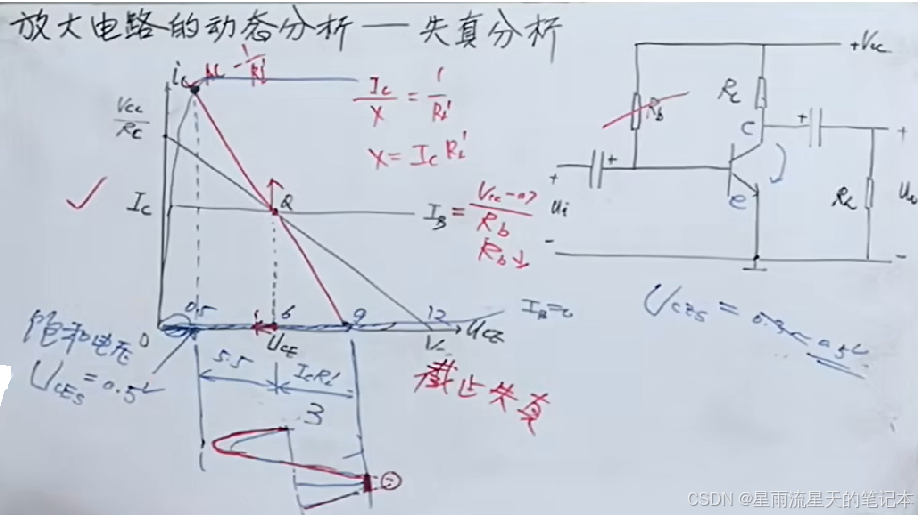 放大电路的动态分析 — 失真分析
iC
AC -1/RL'
Vcc/RC
IC
Q
IC/X = 1/RL'
X = IC RL'
IB = (Vcc-0.7)/Rb
Rb↓
0
0.5
6
9
12
UCE
UCE
IB=0
饱和电压
UCES = 0.5V
5.5
ICRL'
3
截止失真
+Vcc
RB
RC
C
e
+
+
ui
-
+
RL
-
UCES =
0.5V
CSDN @星雨流星天的笔记本